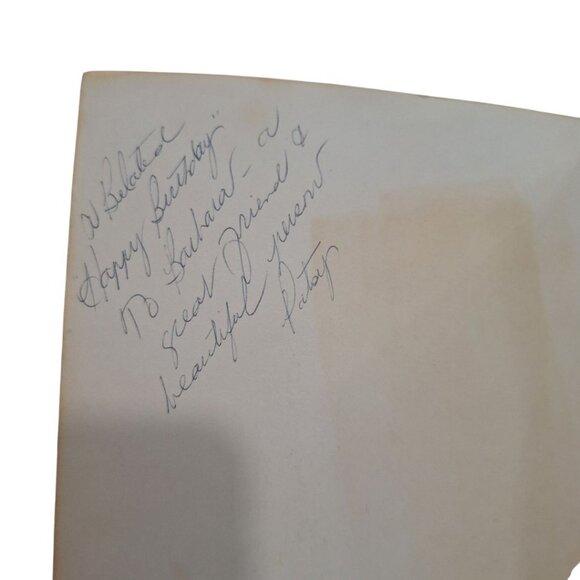 A Belated
"Happy Birthday"
To Barbara - a
great friend &
beautiful person
Patsy